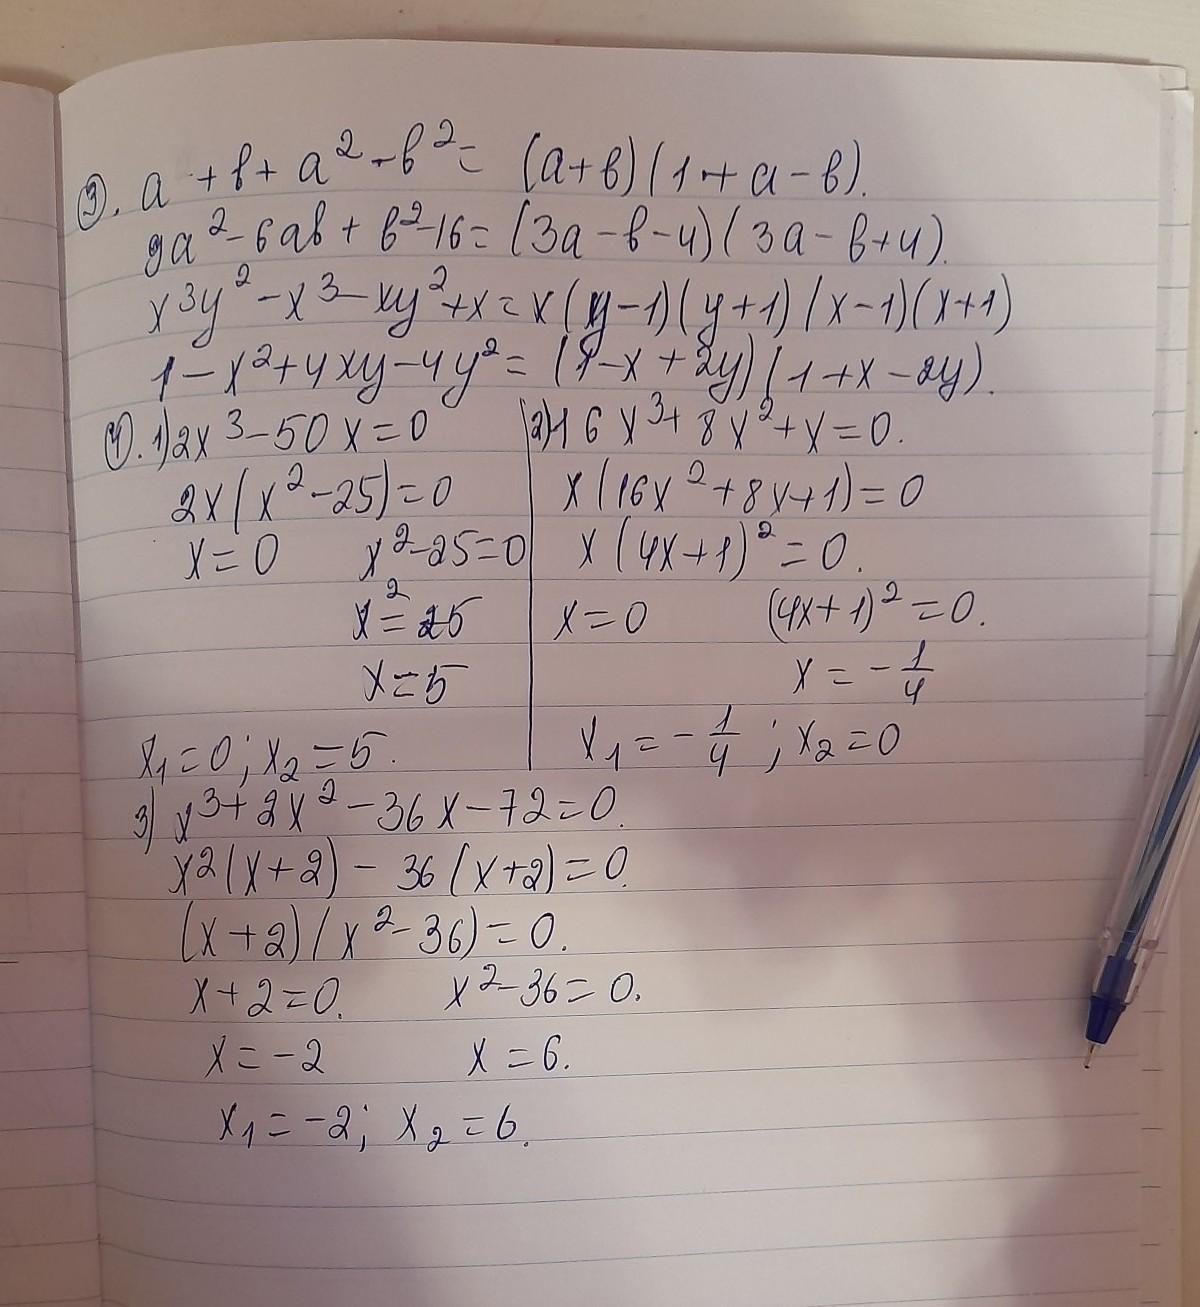 ③. a + b + a² - b² = (a+b)(1+a-b).
9a² - 6ab + b² - 16 = (3a - b - 4)(3a - b + 4).
x³y² - x³ - xy² + x = x(y-1)(y+1)(x-1)(x+1)
1 - x² + 4xy - 4y² = (1 - x + 2y)(1 + x - 2y).
④. 1) 2x³ - 50x = 0
2x(x² - 25) = 0
x = 0 x² - 25 = 0
x² = 25
x = 5
x₁ = 0; x₂ = 5.
2) 16x³ + 8x² + x = 0.
x(16x² + 8x + 1) = 0
x(4x+1)² = 0.
x = 0 (4x+1)² = 0.
x = -1/4
x₁ = -1/4; x₂ = 0
3) x³ + 2x² - 36x - 72 = 0.
x²(x+2) - 36(x+2) = 0.
(x+2)(x² - 36) = 0.
x + 2 = 0. x² - 36 = 0.
x = -2 x = 6.
x₁ = -2; x₂ = 6.